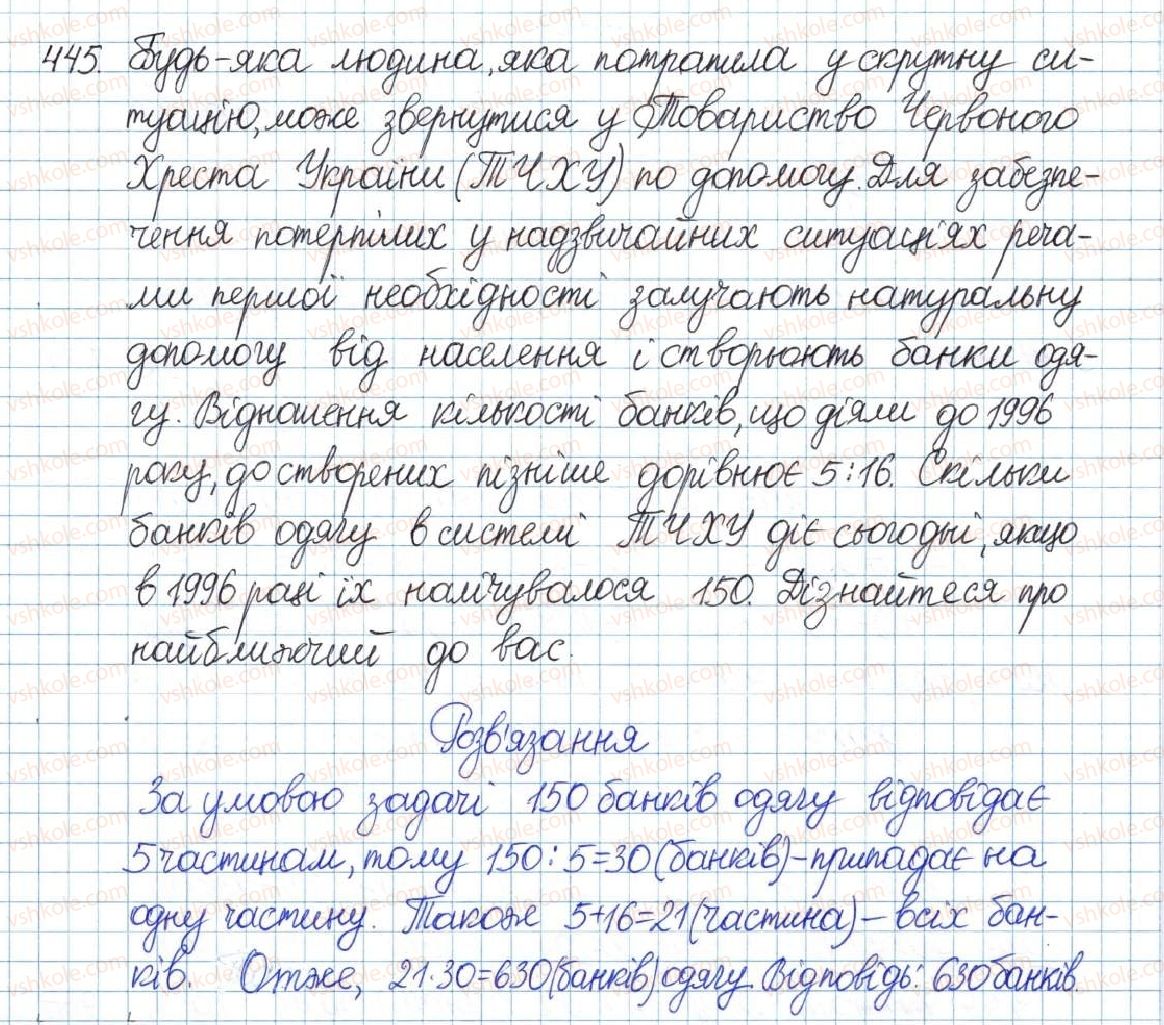 445. Будь-яка людина, яка потрапила у скрутну си-
туацію, може звернутися у Товариство Червоного
Хреста України (ТЧХУ) по допомогу. Для забезпе-
чення потерпілих у надзвичайних ситуаціях реча-
ми першої необхідності залучають натуральну
допомогу від населення і створюють банки одя-
гу. Відношення кількості банків, що діяли до 1996
року, до створених пізніше дорівнює 5:16. Скільки
банків одягу в системі ТЧХУ діє сьогодні, якщо
в 1996 році їх налічувалося 150. Дізнайтеся про
найближчий до вас.
Розв'язання
За умовою задачі 150 банків одягу відповідає
5 частинам, тому 150:5=30 (банків) – припадає на
одну частину. Також 5+16=21 (частина) – всіх бан-
ків. Отже, 21·30=630 (банків) одягу. Відповідь: 630 банків